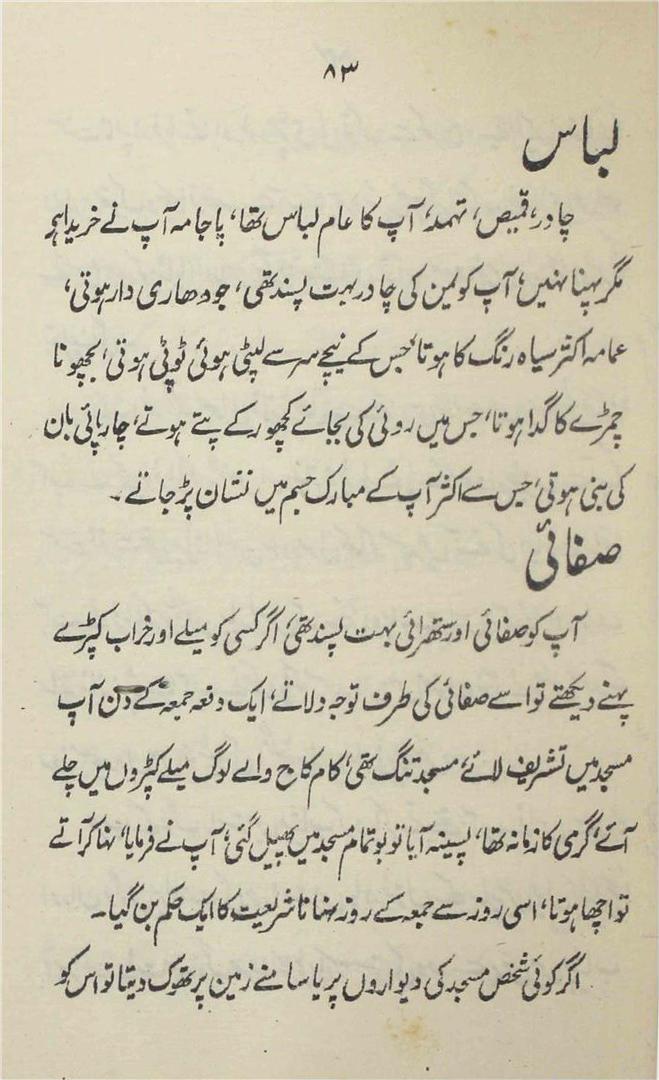 ۸۳
لباس
چادر، قمیص، تہمد، آپ کا عام لباس تھا، پاجامہ آپ نے خریدا ہے
مگر پہنا نہیں، آپ کو یمن کی چادر بہت پسند تھی، جو دھاری دار ہوتی،
عمامہ اکثر سیاہ رنگ کا ہوتا، جس کے نیچے سر سے لپٹی ہوئی ٹوپی ہوتی، بچھونا
چمڑے کا گدا ہوتا، جس میں روئی کی بجائے کھجور کے پتے ہوتے، چارپائی بان
کی بنی ہوتی، جس سے اکثر آپ کے مبارک جسم میں نشان پڑ جاتے۔
صفائی
آپ کو صفائی اور ستھرائی بہت پسند تھی، اگر کسی کو میلے اور خراب کپڑے
پہنے دیکھتے تو اسے صفائی کی طرف توجہ دلاتے، ایک دفعہ جمعہ کے دن آپ
مسجد میں تشریف لائے، مسجد تنگ تھی، کام کاج والے لوگ میلے کپڑوں میں چلے
آئے، گرمی کا زمانہ تھا، پسینہ آیا تو بو تمام مسجد میں پھیل گئی، آپ نے فرمایا، نہا کر آتے
تو اچھا ہوتا، اسی روز سے جمعہ کے روز نہانا شریعت کا ایک حکم بن گیا۔
اگر کوئی شخص مسجد کی دیواروں پر یا سامنے زمین پر تھوک دیتا تو اس کو